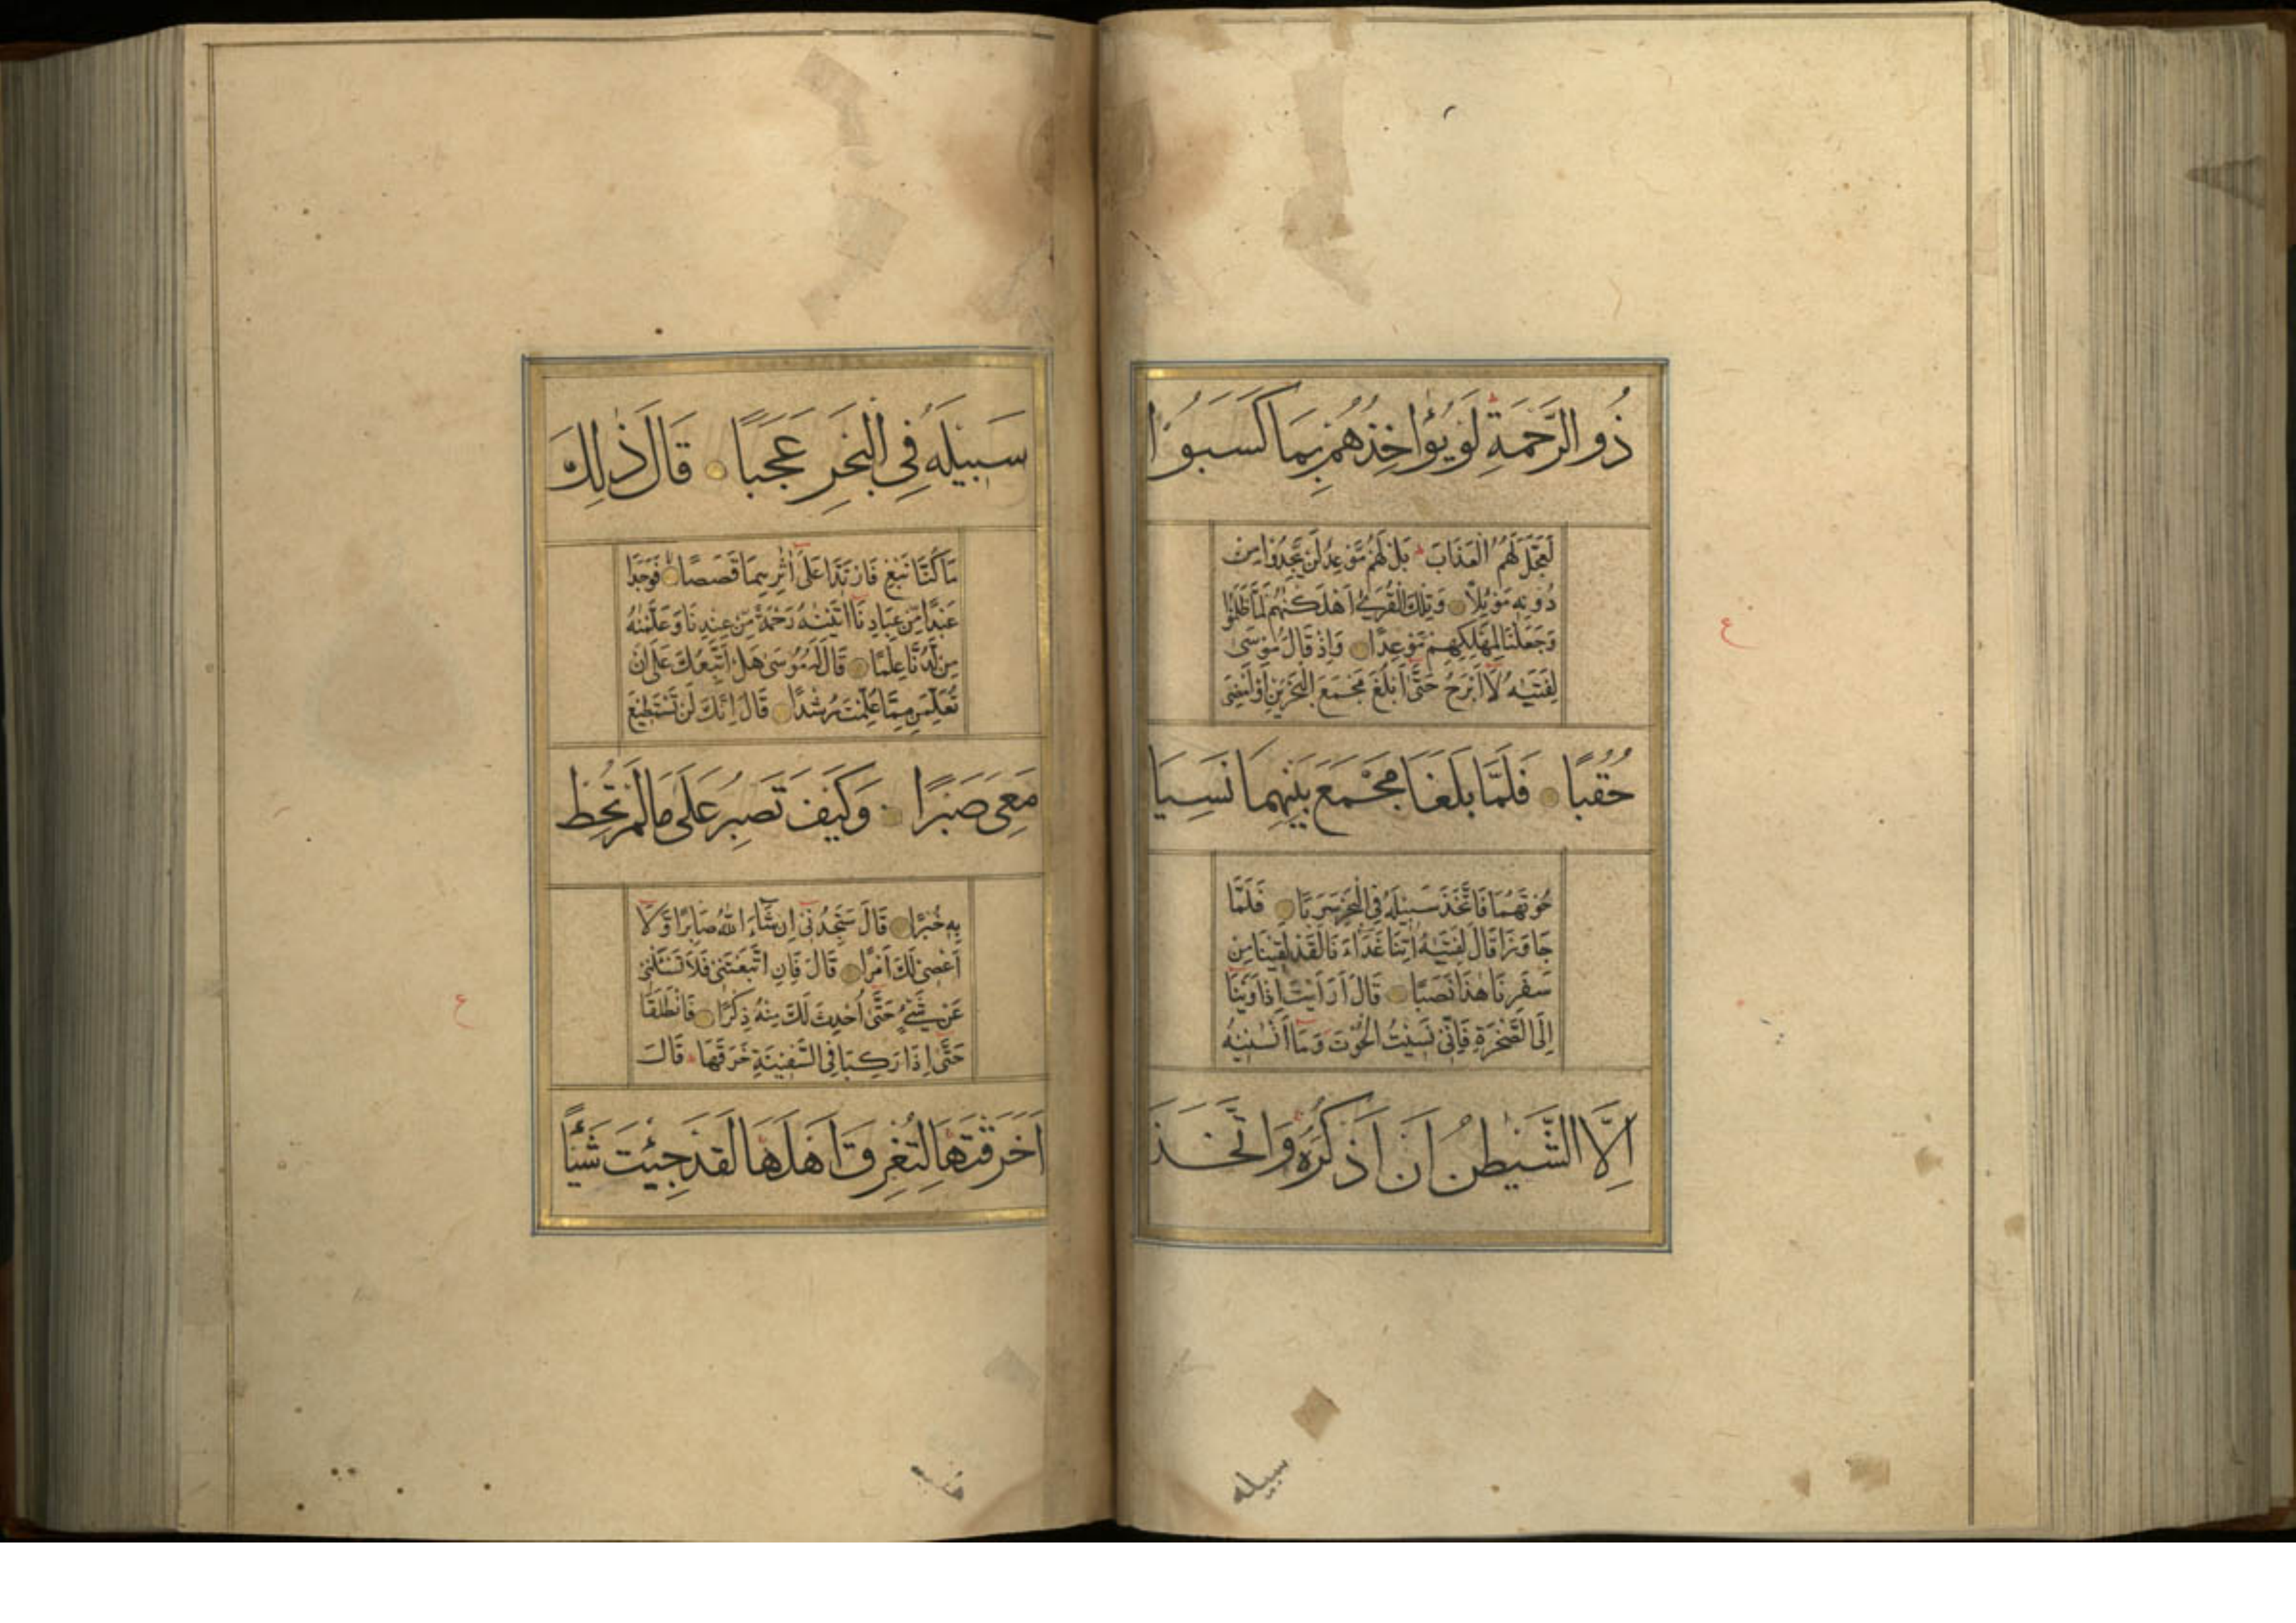 ذُو الرَّحْمَةِ لَوْ يُؤَاخِذُهُمْ بِمَا كَسَبُوا
لَعَجَّلَ لَهُمُ الْعَذَابَ بَلْ لَهُمْ مَوْعِدٌ لَنْ يَجِدُوا مِنْ
دُونِهِ مَوْئِلًا وَتِلْكَ الْقُرَىٰ أَهْلَكْنٰهُمْ لَمَّا ظَلَمُوا
وَجَعَلْنَا لِمَهْلِكِهِمْ مَوْعِدًا وَاِذْ قَالَ مُوسَى
لِفَتٰيهُ لَا اَبْرَحُ حَتّٰى اَبْلُغَ مَجْمَعَ الْبَحْرَيْنِ اَوْ اَمْضِىَ
حُقُبًا فَلَمَّا بَلَغَا مَجْمَعَ بَيْنِهِمَا نَسِيَا
حُوتَهُمَا فَاتَّخَذَ سَبِيلَهُ فِى الْبَحْرِ سَرَبًا فَلَمَّا
جَاوَزَا قَالَ لِفَتٰيهُ اٰتِنَا غَدَاءَنَا لَقَدْ لَقِينَا مِنْ
سَفَرِنَا هٰذَا نَصَبًا قَالَ اَرَاَيْتَ اِذْ اَوَيْنَا
اِلَى الصَّخْرَةِ فَاِنِّى نَسِيتُ الْحُوتَ وَمَا اَنْسٰنِيهُ
اِلَّا الشَّيْطٰنُ اَنْ اَذْكُرَهُ وَاتَّخَذَ
سبيله
سَبِيلَهُ فِى الْبَحْرِ عَجَبًا قَالَ ذٰلِكَ
مَا كُنَّا نَبْغِ فَارْتَدَّا عَلَى اٰثَارِهِمَا قَصَصًا فَوَجَدَا
عَبْدًا مِنْ عِبَادِنَا اٰتَيْنٰهُ رَحْمَةً مِنْ عِنْدِنَا وَعَلَّمْنٰهُ
مِنْ لَدُنَّا عِلْمًا قَالَ لَهُ مُوسٰى هَلْ اَتَّبِعُكَ عَلَى اَنْ
تُعَلِّمَنِ مِمَّا عُلِّمْتَ رُشْدًا قَالَ اِنَّكَ لَنْ تَسْتَطِيعَ
مَعِىَ صَبْرًا وَكَيْفَ تَصْبِرُ عَلَى مَا لَمْ تُحِطْ
بِهِ خُبْرًا قَالَ سَتَجِدُنِى اِنْ شَاءَ اللّٰهُ صَابِرًا وَلَا
اَعْصِى لَكَ اَمْرًا قَالَ فَاِنِ اتَّبَعْتَنِى فَلَا تَسْئَلْنِى
عَنْ شَىْءٍ حَتّٰى اُحْدِثَ لَكَ مِنْهُ ذِكْرًا فَانْطَلَقَا
حَتّٰى اِذَا رَكِبَا فِى السَّفِينَةِ خَرَقَهَا قَالَ
اَخَرَقْتَهَا لِتُغْرِقَ اَهْلَهَا لَقَدْ جِئْتَ شَيْئًا
ع
ع